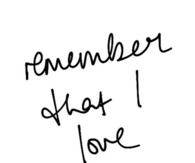 remember
that I
love